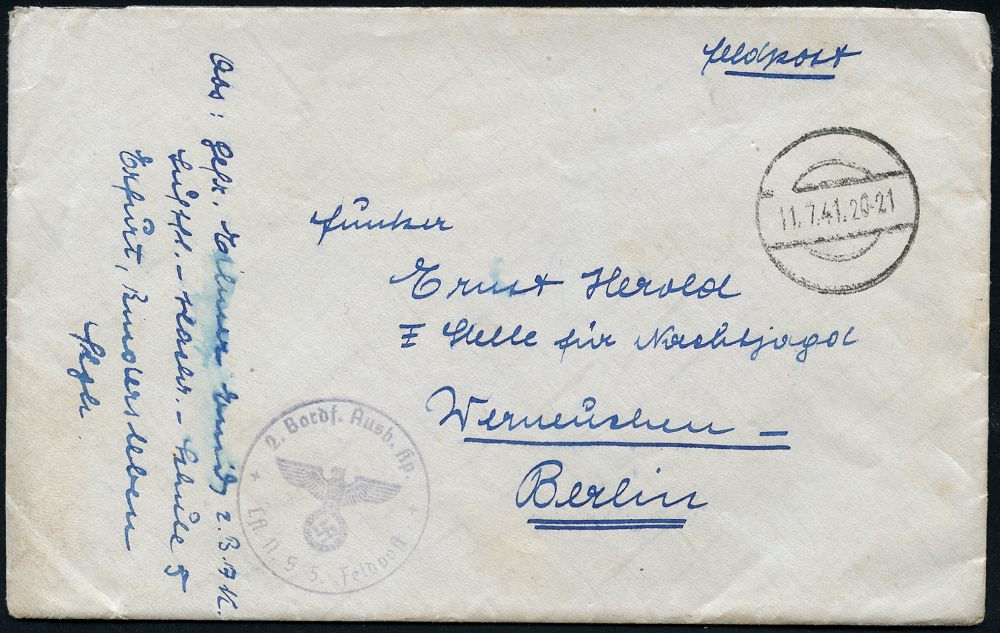 Feldpost
11.7.41.20-21
Funker
Ernst Herold
E Stelle für Nachtjagd
Werneuchen –
Berlin
Abs: Gefr. 2. B. K.
Luftfl. - - Schule 5
Erfurt, Bindersleben
2. Bordf. Ausb. Kp.
LN. S. 5. Feldpost